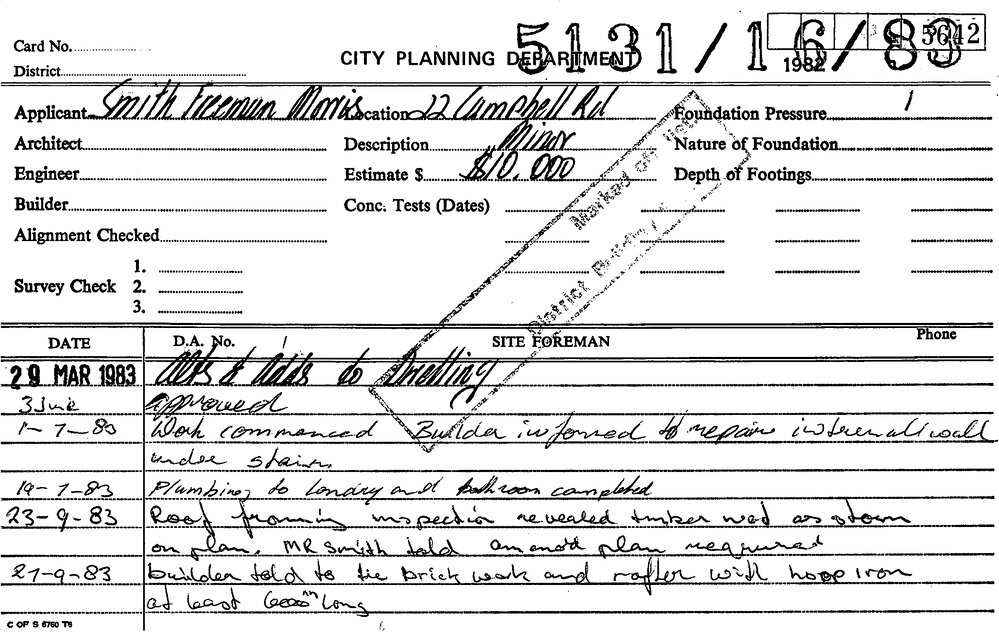 5131/16/83
5642
Card No.
CITY PLANNING DEPARTMENT
1982
District
Applicant Smith Freeman Morris Location 22 Campbell Rd Foundation Pressure
Architect Description Minor Nature of Foundation
Engineer Estimate $ $10,000 Depth of Footings
Builder Conc. Tests (Dates)
Alignment Checked
Survey Check 1.
2.
3.
Marked off
District
DATE D.A. No. SITE FOREMAN Phone
29 MAR 1983 Alts & Adds to Dwelling
3 June approved
1-7-83 Work commenced Builder informed to repair internal wall
under stairs
19-7-83 Plumbing to londry and bathroom completed
23-9-83 Roof framing inspection revealed timber not as shown
on plan. MR Smith told amend plan required
27-9-83 builder told to tie brick work and rafter with hoop iron
at least 600mm long
C OF S 6760 T6